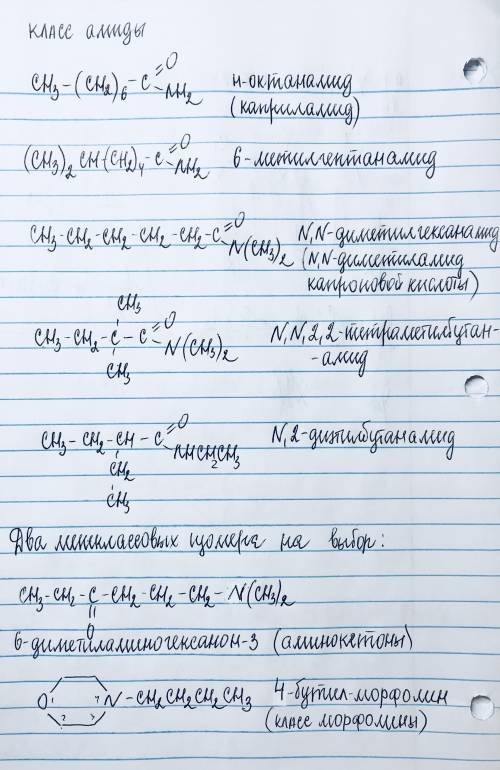 класс амиды
CH3-(CH2)6-C=O NH2 н-октанамид
(каприламид)
(CH3)2CH-(CH2)4-C=O NH2 6-метилгептанамид
CH3-CH2-CH2-CH2-CH2-C=O N(CH3)2 N,N-диметилгексанамид
(N,N-диметиламид
капроновой кислоты)
CH3
CH3-CH2-C-C=O N(CH3)2 N,N,2,2-тетраметилбутан-
-амид
CH3
CH3-CH2-CH-C=O NHCH2CH3 N,2-диэтилбутанамид
CH2
CH3
Два межклассовых изомера на выбор:
CH3-CH2-C-CH2-CH2-CH2-N(CH3)2
O
6-диметиламиногексанон-3 (аминокетоны)
O N-CH2CH2CH2CH3 4-бутил-морфолин
(класс морфолины)